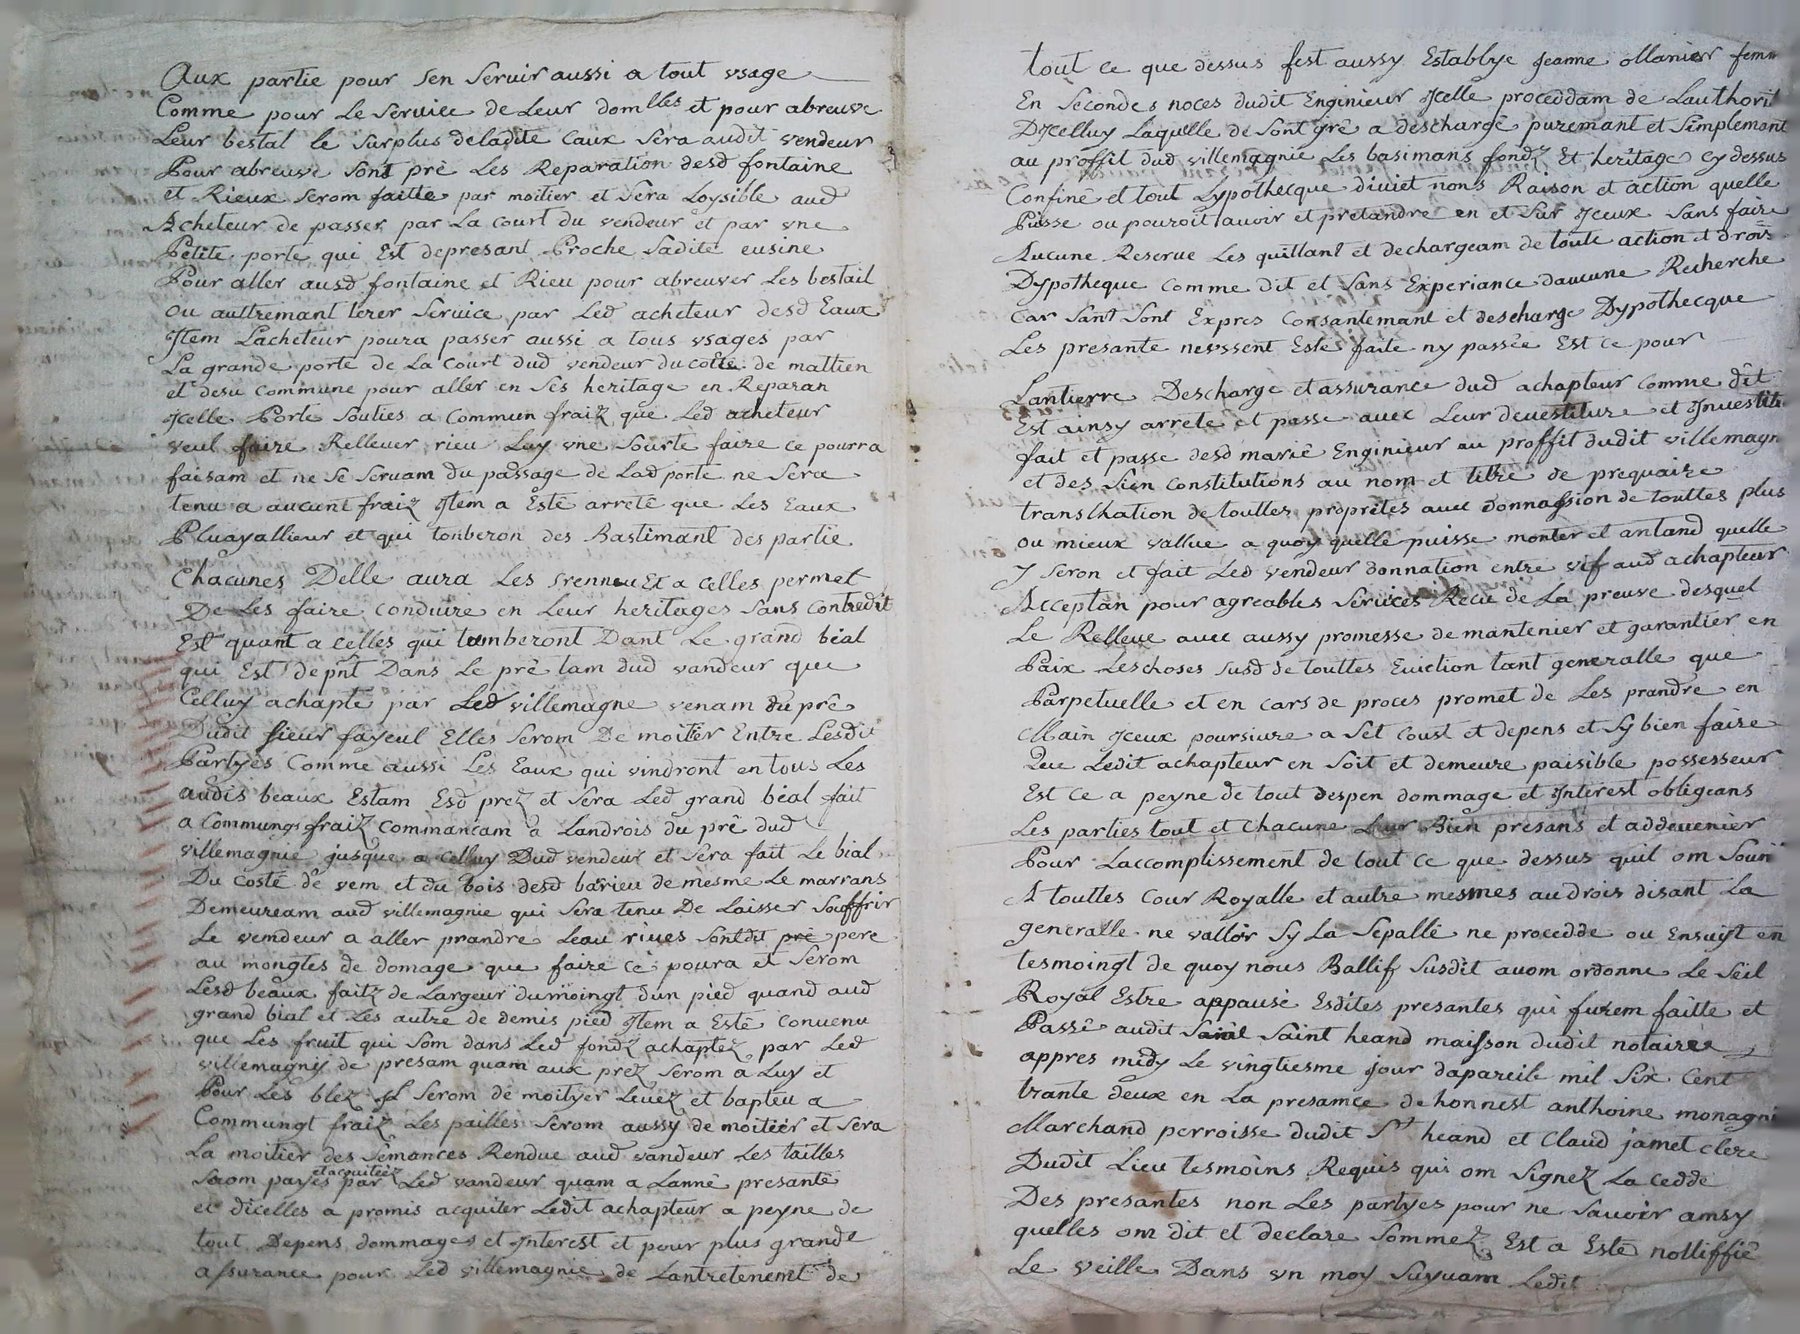 Aux partie pour sen servir aussi a tout usage
Comme pour Le Service de Leur domlles et pour abreuve
Leur bestal le surplus deladite Eaux sera audit vendeur
Pour abreuve sont pré Les Reparation desd fontaine
et Rieux serom faitte par moitier et sera Loysible aud
Acheteur de passer par La Court du vendeur et par vne
Petite porte qui Est depresant Proche sadite eusine
Pour aller ausd fontaine et Rieu pour abreuver Les bestail
ou auttremant tèrer service par Led acheteur desd Eaux
Jtem Lacheteur poura passer aussi a tous vsages par
La grande porte de La Court dud vendeur du cotté de mattien
et desu commune pour aller en ses heritage en Reparan
Jcelle Porte a Commun fraiz que Led acheteur
veul faire Rellever rieu Luy vne sourte faire ce pourra
faisam et ne se servam du passage de Lad porte ne sera
tenu a aucunt fraiz Jtem a Esté arreté que Les Eaux
Pluayallieur et qui tonberon des Bastimant des partie
Chacunes Delle aura Les a celles permet
De Les faire conduire en Leur heritages sans contredit
Est quant a celles qui tomberont Dant Le grand béal
qui Est depnt Dans Le pré tam dud vandeur que
Celluy achapté par Led villemagne venam du pré
Dudit sieur fayeul Elles serom De moitier Entre Lesdit
Partyes Comme aussi Les Eaux qui vindront en tous Les
audis beaux Estam Esd prez et sera Led grand béal fait
a Communs fraiz Commancam a Landrois du pré dud
villemagnie jusque a celluy Dud vendeur et sera fait Le bial
Du Costé de vem et du bois desd barieu de mesme Le marrans
Demeuream aud villemagnie qui sera tenu De Laisser souffrir
Le vemdeur a aller prandre Leau rives sontdit pré pere
au mongtes de domage que faire ce poura et serom
Lesd beaux faitz de Largeur dumoingt dun pied quand aud
grand bial et Les autre de demis pied Jtem a Esté convenu
que Les fruit qui som dans Led fondz achaptez par Led
villemagnie de presam quam aux prez serom a Luy et
Pour Les blez Jl serom de moityer Levez et bapteu a
Commungt fraiz Les pailles serom aussy de moitier et sera
La moitier des sémances Rendue aud vandeur Les tailles
et acquiteez
serom payés par Led vandeur quam a Lannè presante
et dicelles a promis acquiter Ledit achapteur a peyne de
tout Depens dommages et Jnterest et pour plus grande
assurance pour Led villemagnie de Lantretenemt de
tout ce que dessus sest aussy Establye Jeanne ollanier femm
En Secondes noces dudit Enginieur Jcelle proceddam de Lauthorit
DJcelluy Laquelle de sont gré a deschargé puremant et simplemant
au proffit dud villemagnie Les basimans fondz Et heritage cy dessus
Confiné et tout Lypothecque diviet nons Raison et action quelle
Puisse ou pouroit avoir et pretandre en et sur Jceux sans faire
Aucune Reserve Les quittant et dechargeam de toute action et drois
Dypotheque comme dit et sans Experiance daucune Recherche
Car sant sont Expres Consantemant et descharge Dypothecque
Les presante neussent Esté faite ny passée Est ce pour
Lantierre Descharge et assurance dud achapteur comme dit
Est ainsy arreté et passe avec Leur devestiture et Jnvestit
fait et passe desd marié Enginieur au proffit dudit villemagn
et des sien constitutions au nom et titre de prequaire
translhation de touttes proprétes avec donnassion de touttes plus
ou mieux vallue a quoy quelle puisse monter et antand quelle
J seron et fait Led vendeur donnation entre vif aud achapteur
Acceptan pour agreables services Receu de La preuve desquel
Le Relleve avec aussy promesse de mantenier et garantier en
Paix Leschoses susd de touttes Eviction tant generalle que
Parpetuelle et en cars de proces promet de Les prandre en
Main Jceux poursiure a set coust et depens et sy bien faire
Que Ledit achapteur en soit et demeure paisible possesseur
Est ce a peyne de tout despen dommage et Jnterest obligeans
Les parties tout et chacune Leur Bien presans et addevenier
Pour Laccomplissement de tout ce que dessus quil om soun
A touttes Cour Royalle et autre mesmes audrois disant La
generalle ne vallor sy La sepallé ne procedde ou Ensuyt en
tesmoingt de quoy nous Ballif susdit avom ordonne Le séil
Royal Estre appausé Esdites presantes qui furem faitte et
Passé audit Saint heand maisson dudit notairee
appres midy Le vingtiesme jour dapareile mil six cent
trante deux en La presamce de honnest anthoine monagni
Marchand perroisse dudit St heand et Claud jamet clerc
Dudit Lieu tesmoins Requis qui om signez La cedde
Des presantes non Les partyes pour ne savoir amsy
quelles om dit et declare sommez Est a Esté nottiffié
Le veille Dans vn moy suyuam Ledit